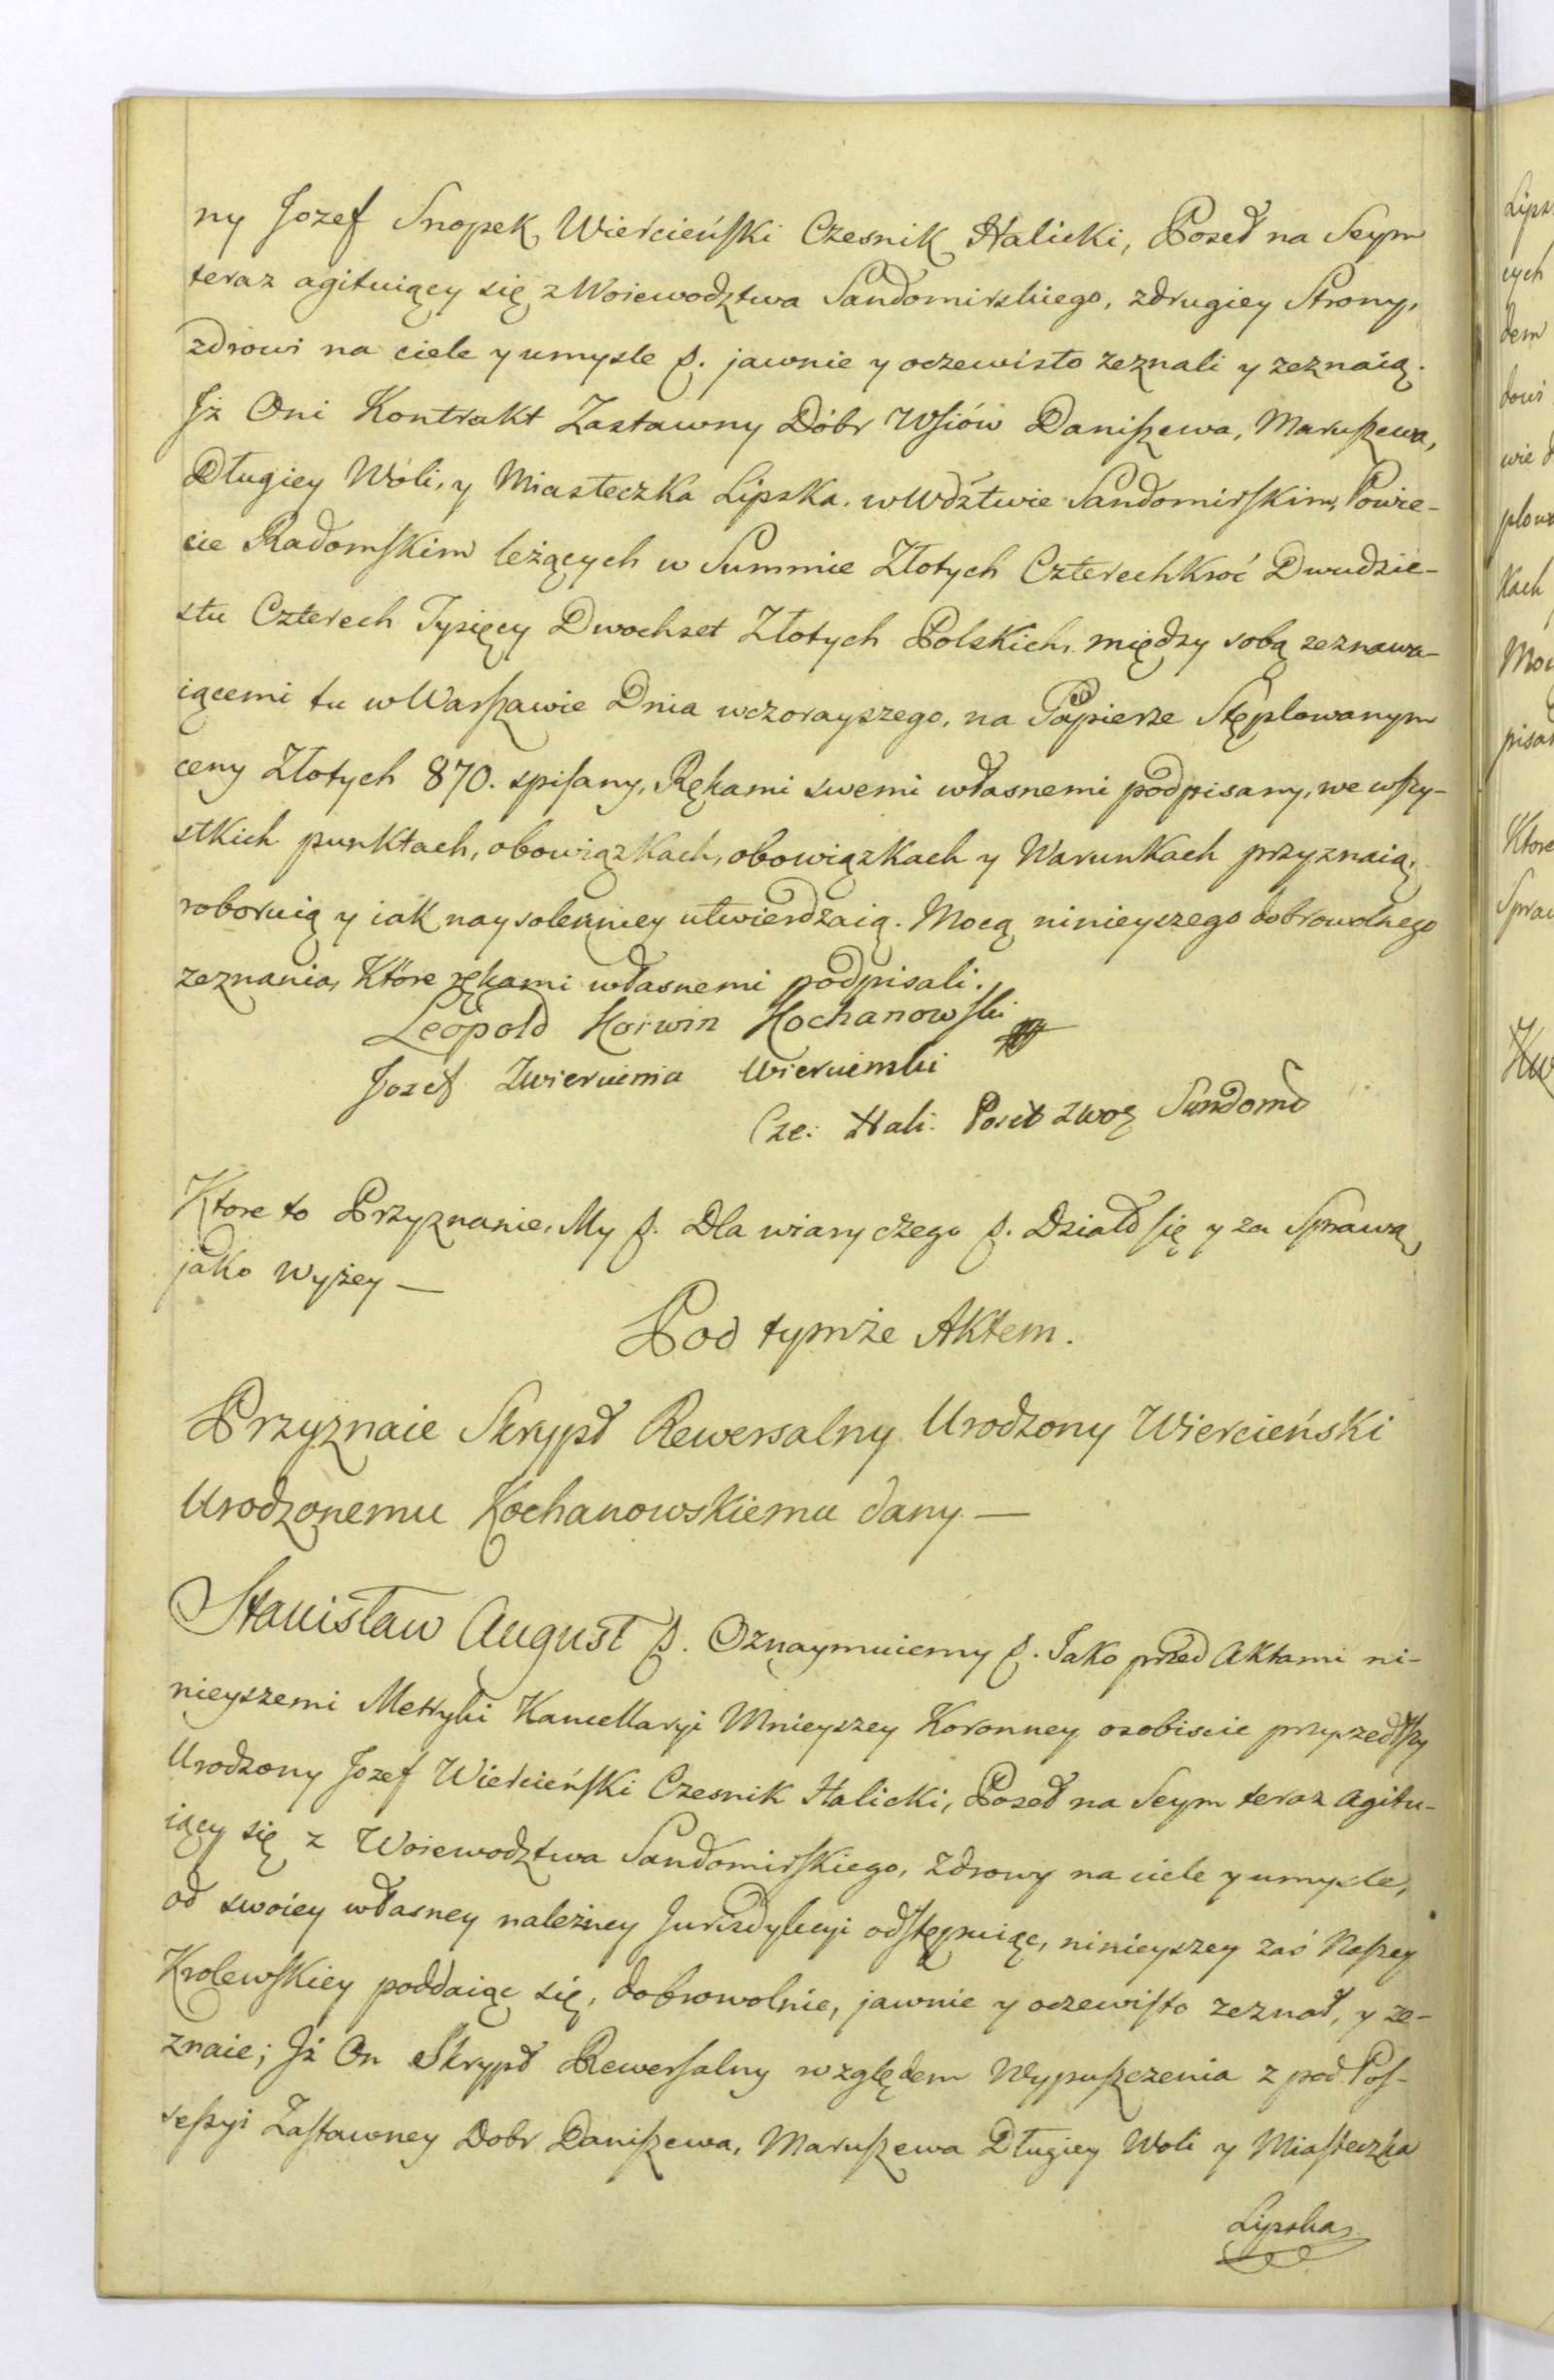 ny Jozef Snopek Wiercieński Czesnik Halicki, Poseł na Seym
teraz agituiący się z Woiewodztwa Sandomirskiego, z drugiey Strony,
zdrowi na ciele y umysle p. jawnie y oczewisto zeznali y zeznaią.
Jż Oni Kontrakt Zastawny Dóbr Wsiów Daniszewa, Maruszewa,
Długiey Woli, y Miasteczka Lipska. w Wdztwie Sandomirskim, Powie-
cie Radomskim leżących w Summie Złotych Czterechkroć Dwudzie-
stu Czterech Tysięcy Dwochset Złotych Polskich, między sobą zeznawa-
iącemi tu w Warszawie Dnia wczorayszego, na Papierze Stęplowanym
ceny Złotych 870. spisany, Rękami swemi własnemi podpisany, we wszy-
stkich punktach, obowiązkach, obowiązkach y Warunkach przyznaią,
roboruią y iak naysolenniey utwierdzaią. Mocą ninieyszego dobrowolnego
zeznania, Które rękami własnemi podpisali.
Leopold Korwin Kochanowski
Jozef Zwiercienia Wiercienski
Cze: Hali: Poseł z Woz Sandomi
Ktore to Przyznanie, My p. Dla wiary czego p. Działo się y za Sprawą,
jako wyżey —
Pod tymże Aktem.
Przyznaie Skrypt Rewersalny Urodzony Wiercieński
Urodzonemu Kochanowskiemu dany —
Stanisław August p. Oznaymuiemy p. Jako przed Aktami ni-
nieyszemi Metryki Kancellaryi Mnieyszey Koronney osobiscie przyszedłszy
Urodzony Jozef Wiercieński Czesnik Halicki, Poseł na Seym teraz agitu-
iący się z Woiewodztwa Sandomirskiego, zdrowy na ciele y umysle,
od swoiey własney należney Jurisdykcyi odstępuiąc, ninieyszey zaś Naszey
Krolewskiey poddaiąc się, dobrowolnie, jawnie y oczewisto zeznał, y ze-
znaie; Jż On Skrypt Rewersalny względem Wypuszczenia z pod Pos-
sessyi Zastawney Dobr Daniszewa, Maruszewa Długiey Woli y Miasteczka
Lipska